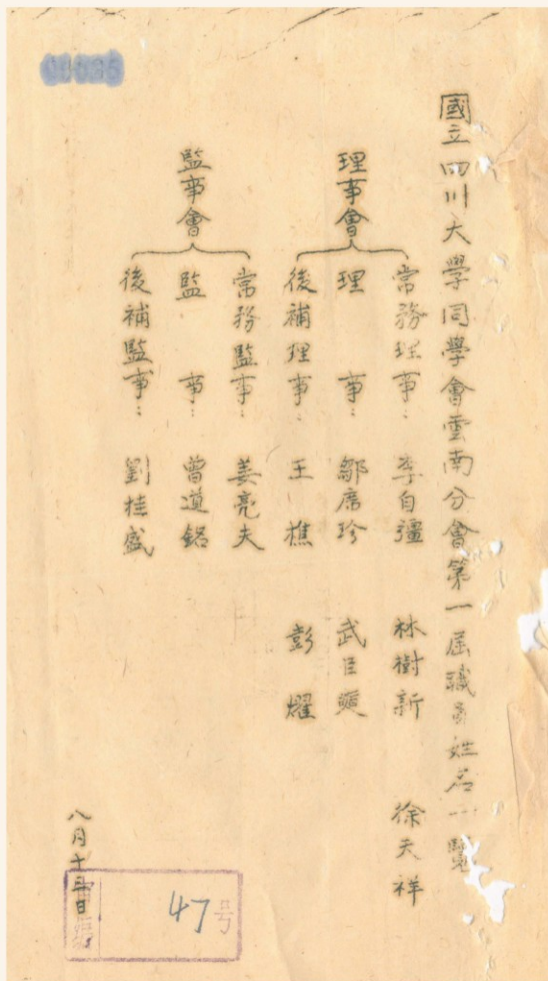 國立四川大學同學會雲南分會第一屆職員姓名一覽
理事會
常務理事：李自彊 林樹新 徐天祥
理事：鄒席珍 武臣
後補理事：王樵 彭燿
監事會
常務監事：姜亮夫
監事：曾道銘
後補監事：劉桂盛
八月十日
47号